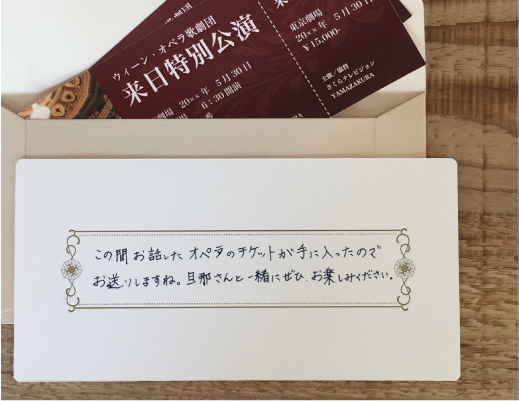 ウィーン・オペラ歌劇団
来日特別公演
20××年 5月30日
6:30開演
東京劇場
20××年 5月30日
¥15,000-
主催/協賛
さくらテレビジョン
YAMAZAKURA
この間お話したオペラのチケットが手に入ったので
お送りしますね。旦那さんと一緒にぜひ、お楽しみください。